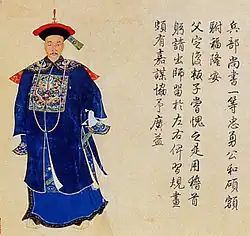 兵部尚書一等忠勇公和碩額
駙福隆安
父定後叛子嘗愧之是用稽首
躬請出師留於左右俾習規畫
頗有嘉謀協予廣益